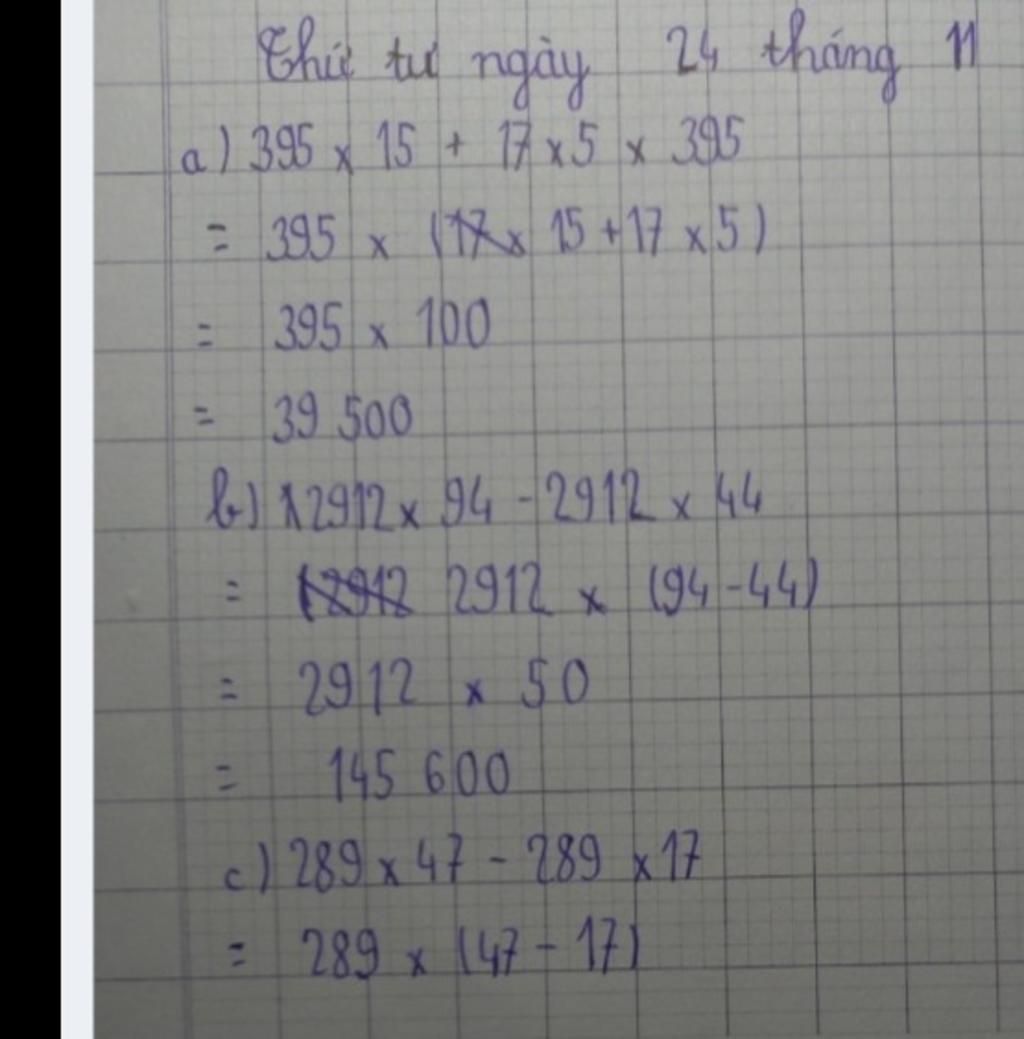 Thứ tư ngày 24 tháng 11
a) 395 x 15 + 17 x 5 x 395
= 395 x (15 + 17 x 5)
= 395 x 100
= 39 500
b) 2912 x 94 - 2912 x 44
= 2912 x (94 - 44)
= 2912 x 50
= 145 600
c) 289 x 47 - 289 x 17
= 289 x (47 - 17)